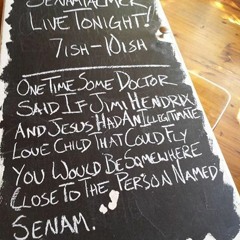 SENAM PALMER
LIVE TONIGHT!
7ISH-10ISH
ONE TIME SOME DOCTOR
SAID IF JIMI HENDRIX
AND JESUS HAD AN ILLEGITIMATE
LOVE CHILD THAT COULD FLY
YOU WOULD BE SOMEWHERE
CLOSE TO THE PERSON NAMED
SENAM.